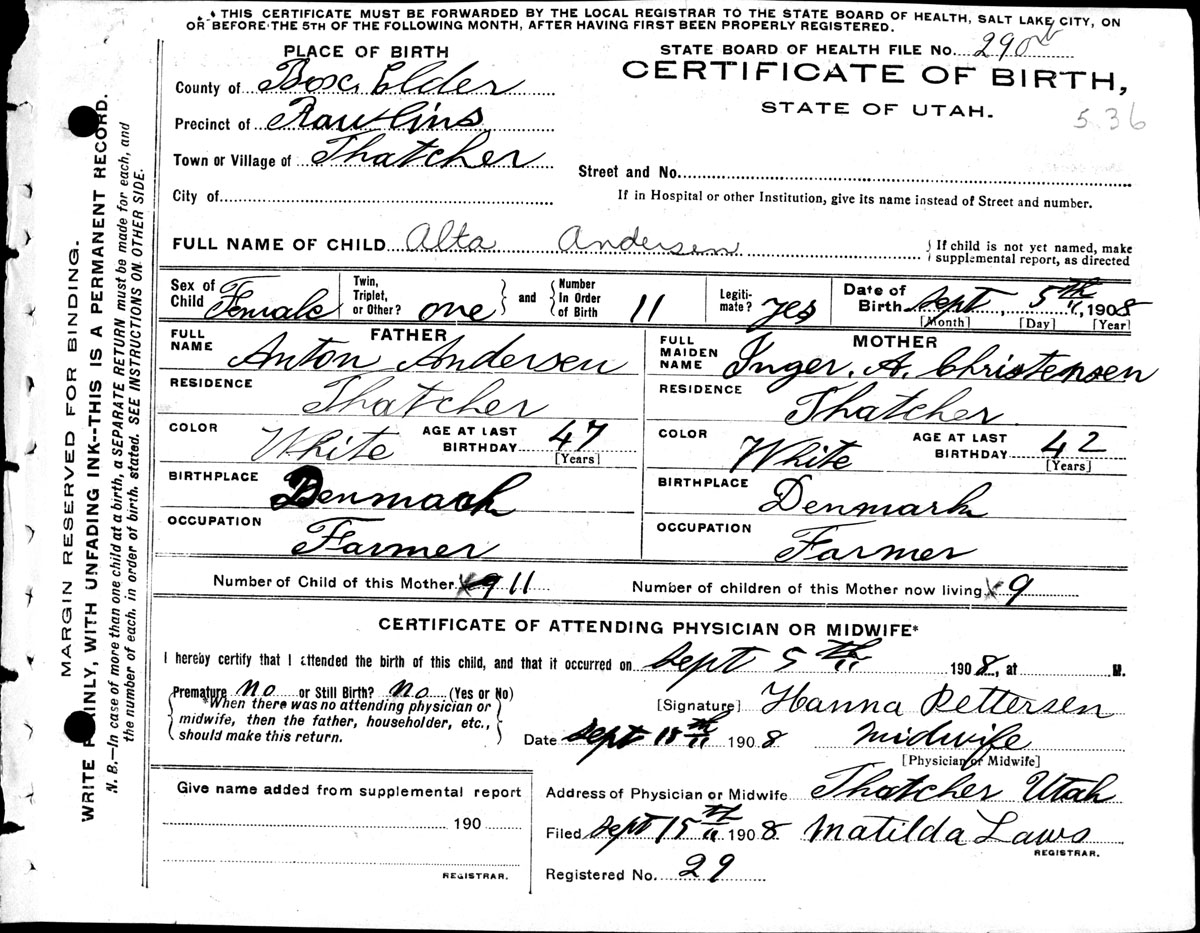 THIS CERTIFICATE MUST BE FORWARDED BY THE LOCAL REGISTRAR TO THE STATE BOARD OF HEALTH, SALT LAKE CITY, ON
OR BEFORE THE 5TH OF THE FOLLOWING MONTH, AFTER HAVING FIRST BEEN PROPERLY REGISTERED.
PLACE OF BIRTH
STATE BOARD OF HEALTH FILE No. 290
County of Box Elder
CERTIFICATE OF BIRTH,
STATE OF UTAH.
536
Precinct of Rawlins
Town or Village of Thatcher
Street and No.
City of
If in Hospital or other Institution, give its name instead of Street and number.
FULL NAME OF CHILD Alta Andersen
If child is not yet named, make
supplemental report, as directed
Sex of Child Female
Twin, Triplet, or Other? one
and Number In Order of Birth 11
Legiti-mate? yes
Date of Birth Sept 5th 1908
[Month] [Day] [Year]
FATHER
FULL NAME Anton Andersen
RESIDENCE
Thatcher
COLOR White AGE AT LAST BIRTHDAY 47
[Years]
BIRTHPLACE
Denmark
OCCUPATION
Farmer
MOTHER
FULL MAIDEN NAME Inger. A. Christensen
RESIDENCE
Thatcher
COLOR White AGE AT LAST BIRTHDAY 42
[Years]
BIRTHPLACE
Denmark
OCCUPATION
Farmer
Number of Child of this Mother x9 11
Number of children of this Mother now living x 9
CERTIFICATE OF ATTENDING PHYSICIAN OR MIDWIFE*
I hereby certify that I attended the birth of this child, and that it occurred on Sept 5th 1908, at M.
Premature No or Still Birth? No (Yes or No)
*When there was no attending physician or
midwife, then the father, householder, etc.,
should make this return.
[Signature] Hanna Pettersen
Date Sept 18th 1908 Midwife
[Physician or Midwife]
Give name added from supplemental report
190
REGISTRAR.
Address of Physician or Midwife Thatcher Utah
Filed Sept 15th 1908 Matilda Laws
REGISTRAR.
Registered No. 29
MARGIN RESERVED FOR BINDING.
WRITE PLAINLY, WITH UNFADING INK--THIS IS A PERMANENT RECORD.
N. B.—In case of more than one child at a birth, a SEPARATE RETURN must be made for each, and
the number of each, in order of birth, stated. SEE INSTRUCTIONS ON OTHER SIDE.